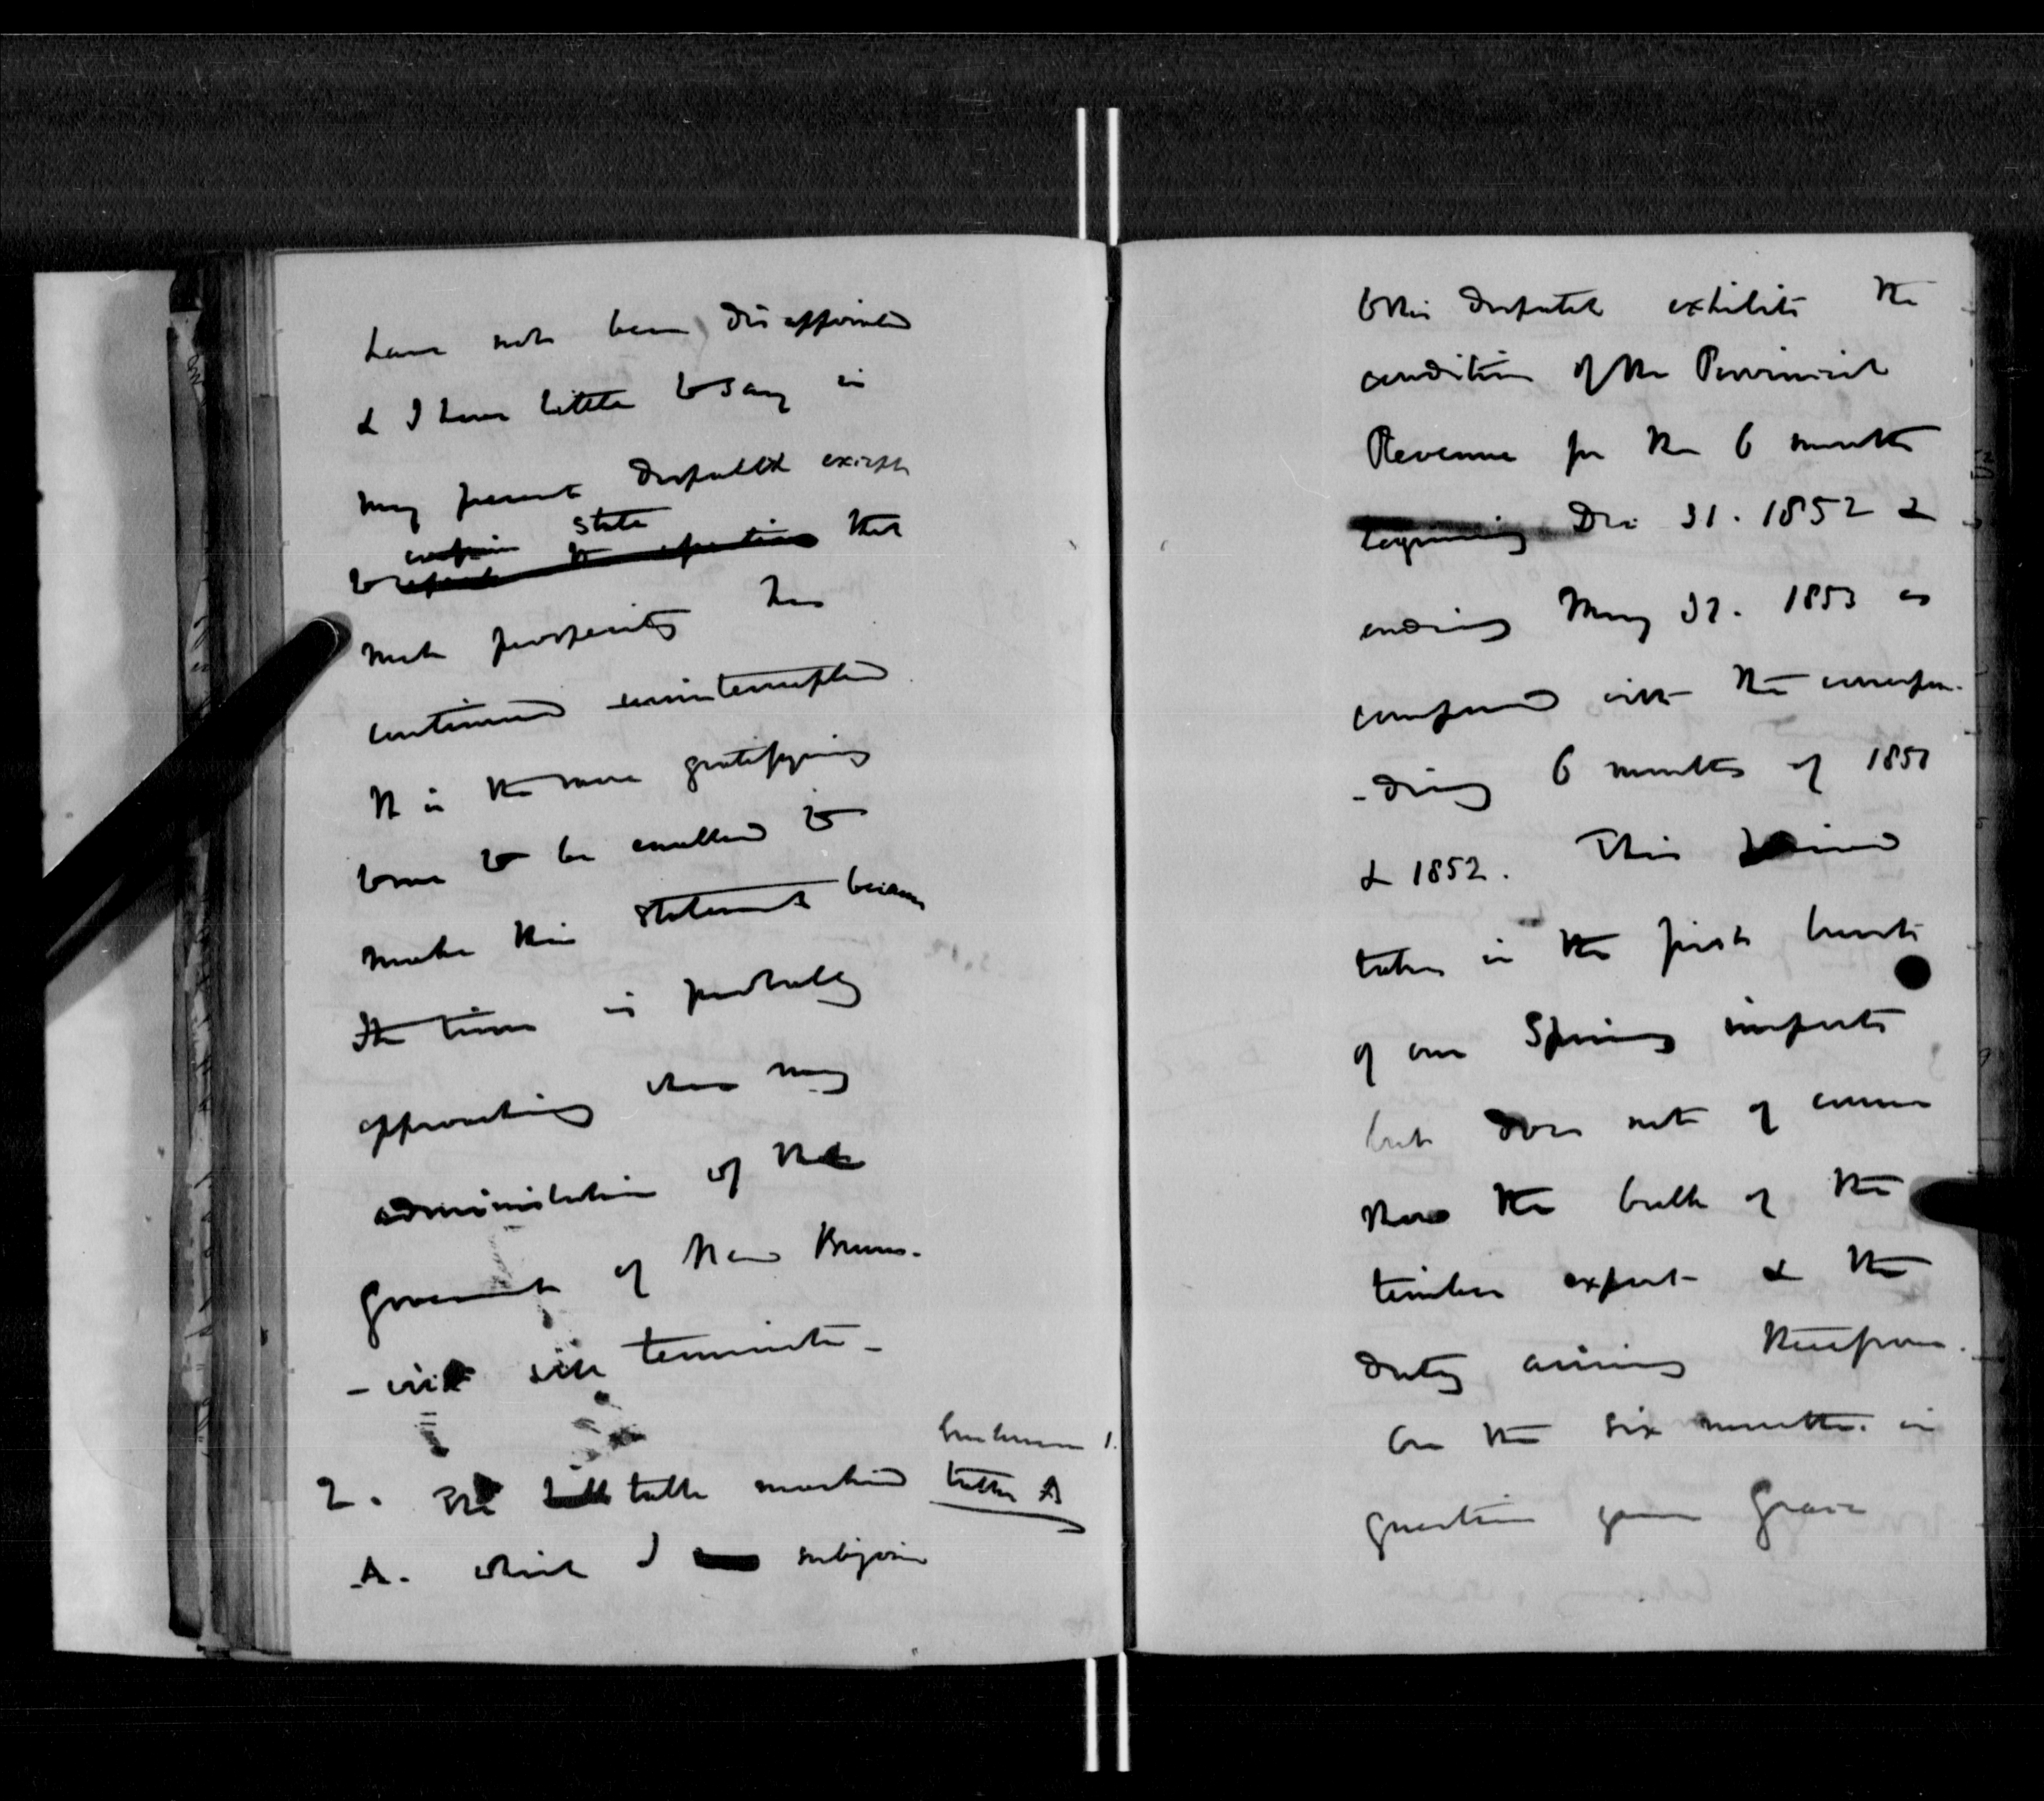 have not been disappointed
& I have little to say in
my present despatch except
state
to that
such prosperity has
continued uninterrupted
It is the more gratifying
to me to be enabled to
make this statement because
the time is probably
approaching when my
administration of the
Government of New Bruns-
-wick will terminate -
Enclosure 1.
2. The table marked table A
A. which I subjoin
to this despatch exhibits the
condition of the Provincial
Revenue for the 6 months
beginning Dec 31. 1852 &
ending May 31. 1853 as
compared with the correspon-
-ding 6 months of 1851
& 1852. This period
takes in the first burst
of our Spring imports
but does not of course
show the bulk of the
timber export & the
duty arising therefrom.
On the six months in
question your Grace